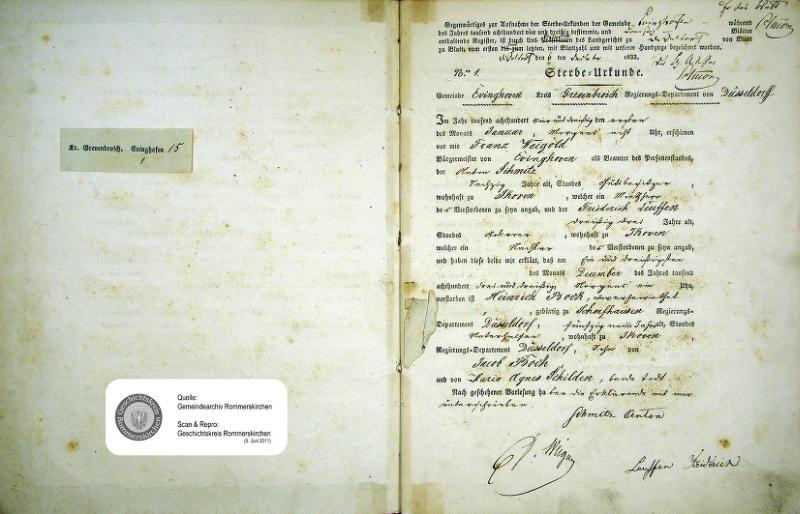 Kr. Grevenbroich, Evinghofen 15
1
Geschichtskreis Rommerskirchen
Quelle:
Gemeindearchiv Rommerskirchen
Scan & Repro:
Geschichtskreis Rommerskirchen
(8. Juni 2011)
Gegenwärtiges zur Aufnahme der Sterbe-Urkunden der Gemeinde Evinghofen während
des Jahres tausend achthundert vier und dreißig bestimmte, und Blätter
enthaltende Register, ist durch Uns des Landgerichts zu Düsseldorf von Blatt
zu Blatt, vom ersten bis zum letzten, mit Blattzahl und mit unserm Handzuge bezeichnet worden.
Düsseldorf den 6 ten December 1833.
Nro. 1. Sterbe-Urkunde.
Gemeinde Evinghoven Kreis Grevenbroich Regierungs-Departement von Düsseldorff
Im Jahr tausend achthundert vier und dreißig den ersten
des Monats Januar, Morgens acht Uhr, erschienen
vor mir Franz Weigold
Bürgermeister von Evinghoven als Beamter des Personenstandes,
der Anton Schmitz
Sechzig Jahre alt, Standes Gutsbesitzer,
wohnhaft zu Ikoven, welcher ein
des Verstorbenen zu seyn angab, und der Friederich Leuffen
dreißig drei Jahre alt,
Standes Ackerer, wohnhaft zu Ikoven
welcher ein Nachbar des Verstorbenen zu seyn angab,
und haben diese beide mir erklärt, daß am Ein und dreißigsten
des Monats December des Jahres tausend
achthundert drei und dreißig Morgens ein Uhr,
verstorben ist Heinrich Bock, unverheirathet
, gebürtig zu Schafhausen Regierungs-
Departement Düsseldorf, fünfzig neun Jahre alt, Standes
wohnhaft zu Ikoven
Regierungs-Departement Düsseldorf, Sohn von
Jacob Bock
und von Maria Agnes Schilden, beide todt.
Nach geschehener Vorlesung haben die Erklärende mit mir
unterschrieben
Schmitz Anton
Leuffen Friderich